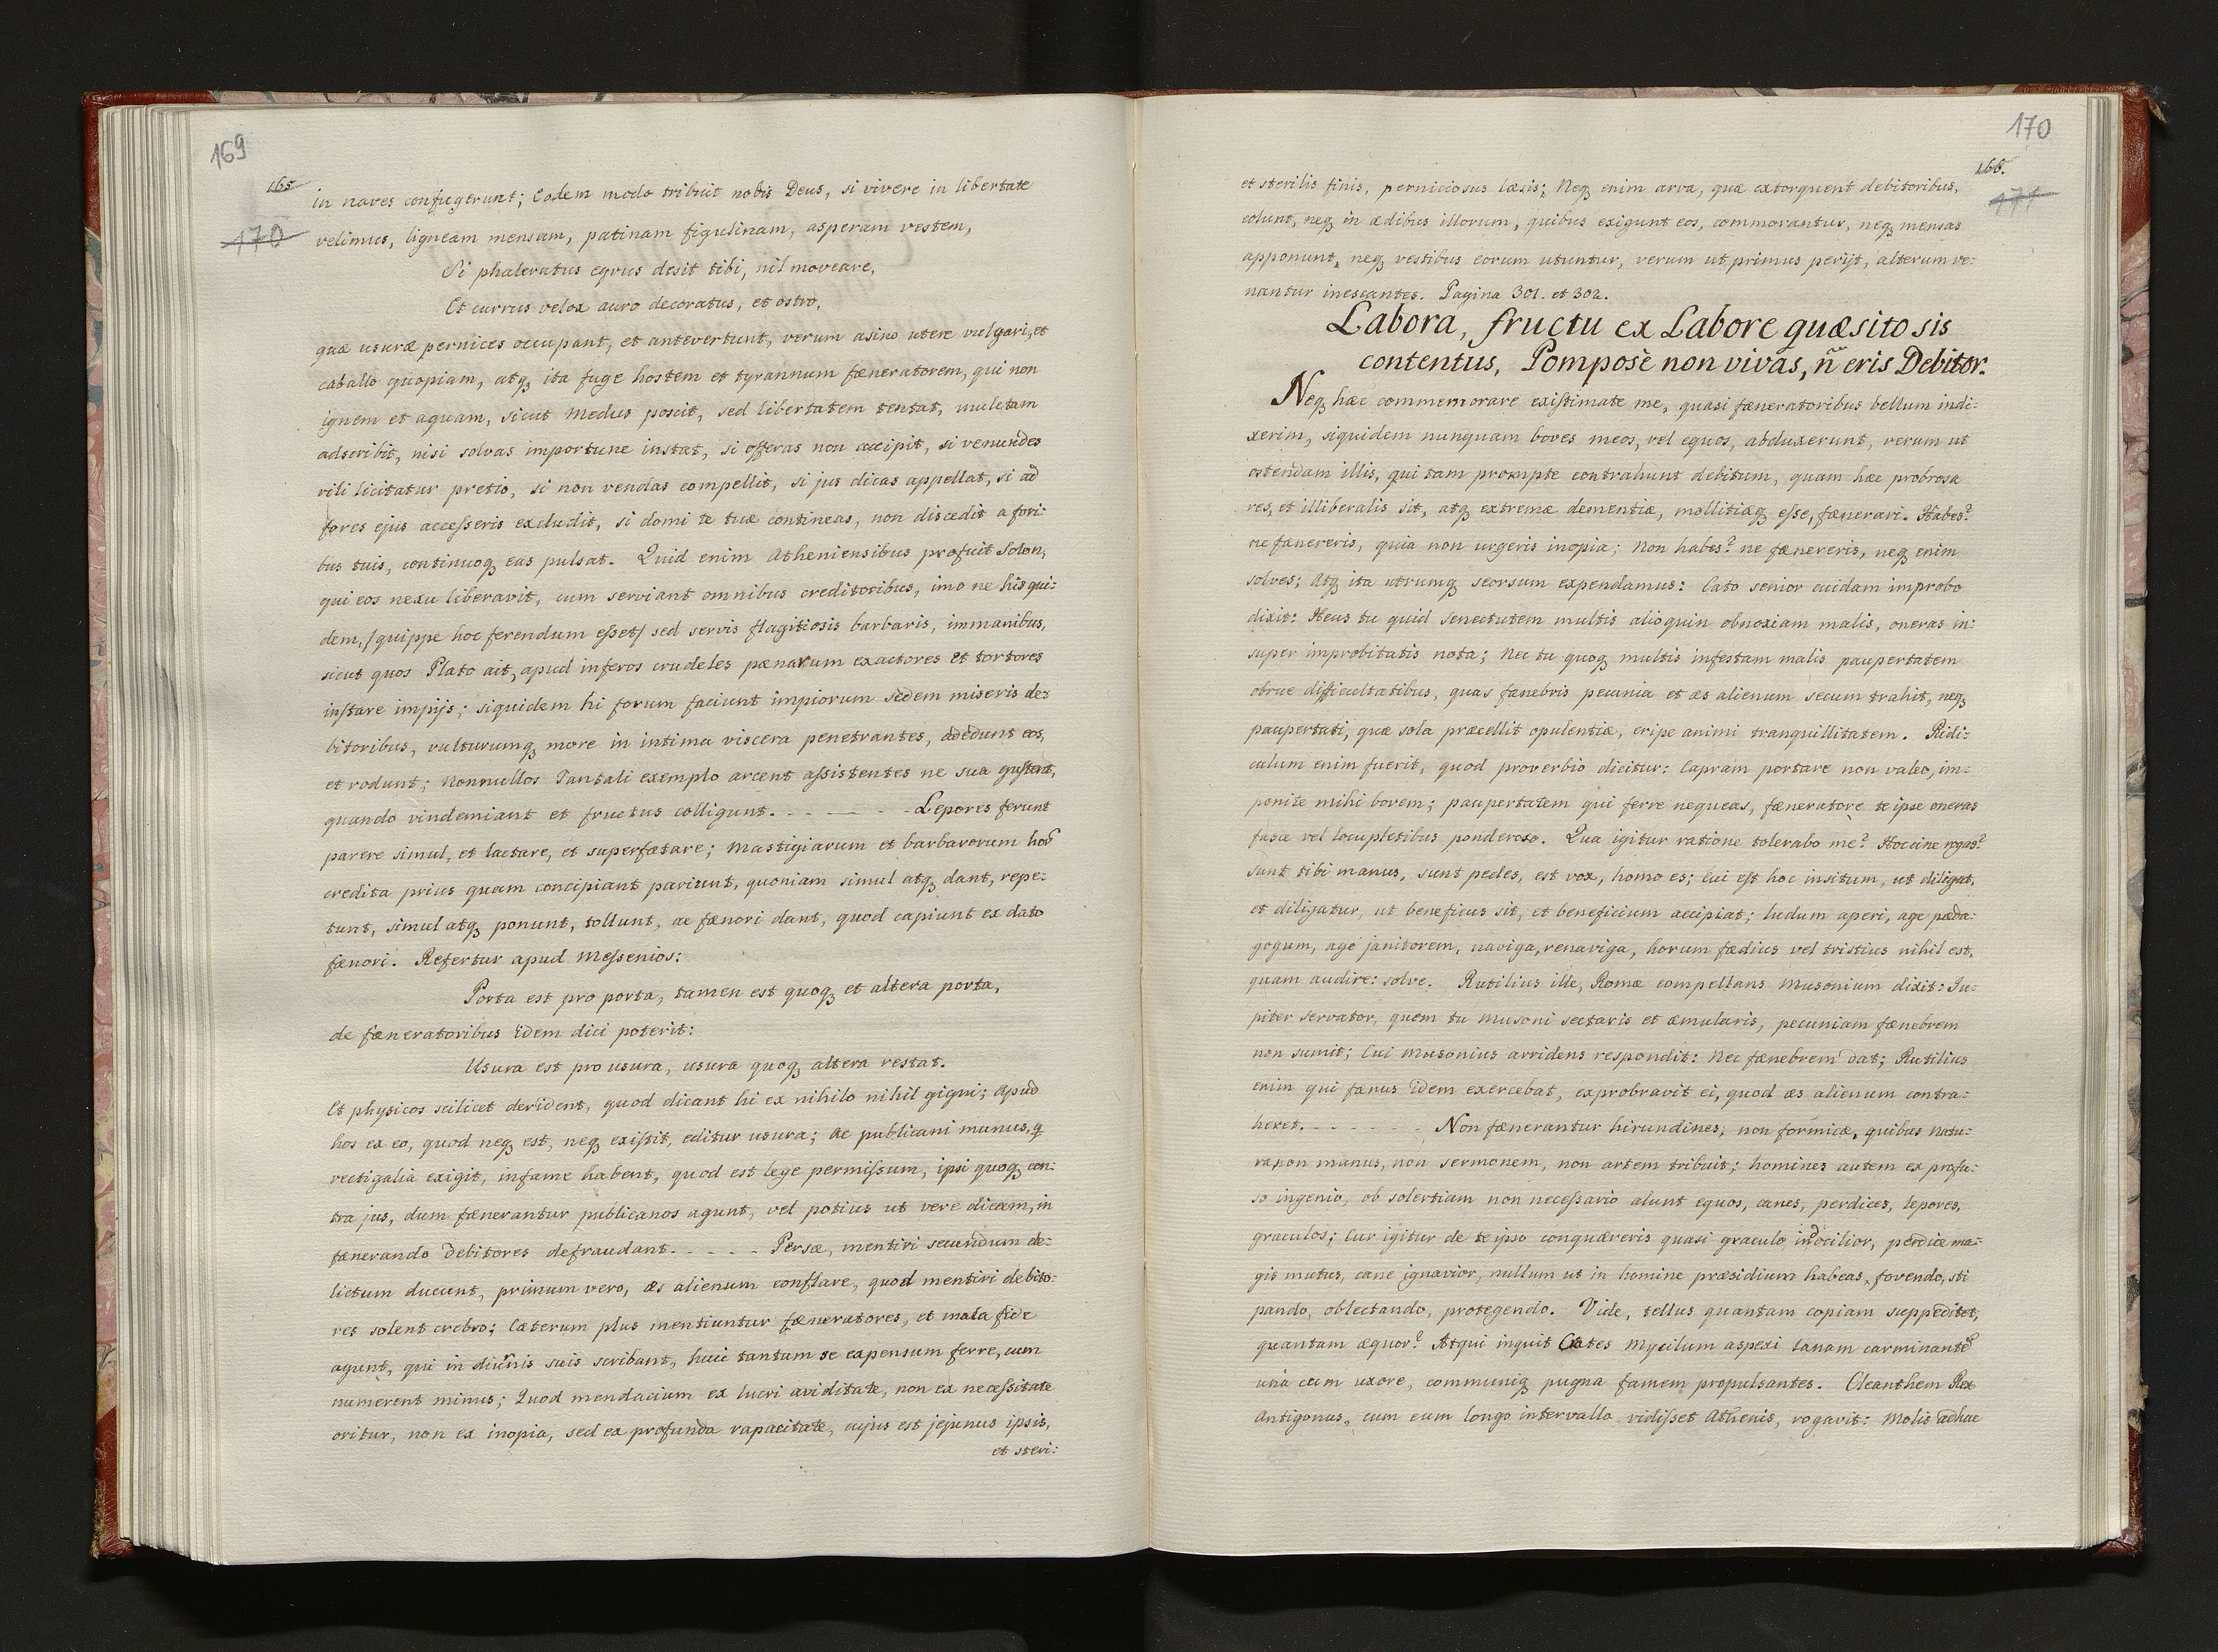 169
165
170
in naves confugerunt; Eodem modo tribuit nobis Deus, si vivere in libertate
velimus, ligneam mensam, patinam figulinam, asperam vestem,
Si phaleratus eqvus desit tibi, nil moveare,
Et currus velox auro decoratus, et ostro,
quæ usuræ pernices occupant, et antevertunt, verum asino utere vulgari, et
caballo quopiam, atq; ita fuge hostem et tyrannum fæneratorem, qui non
ignem et aquam, sicut Medus poscit, sed libertatem tentat, mulctam
adscribit, nisi solvas importune instat, si offeras non accipit, si venundes
vili licitatur pretio, si non vendas compellit, si jus dicas appellat, si ad
fores ejus accesseris excludit, si domi te tuæ contineas, non discedit a fori-
bus tuis, continuoq; eas pulsat. Quid enim Atheniensibus profuit Solon,
qui eos nexu liberavit, cum serviant omnibus creditoribus, imo ne his qui-
dem, /quippe hoc ferendum esset/ sed servis flagitiosis barbaris, immanibus,
sicut quos Plato ait, apud inferos crudeles pænarum exactores et tortores
instare impijs; siquidem hi forum faciunt impiorum sedem miseris de-
bitoribus, vulturumq; more in intima viscera penetrantes, adedunt eos,
et rodunt; Nonnullos Tantali exemplo arcent assistentes ne sua gustent,
quando vindemiant et fructus colligunt. - - - - - - Lepores ferunt
parere simul, et lactare, et superfætare; Mastigiarum et barbarorum hor̃
credita prius quam concipiant pariunt, quoniam simul atq; dant, repe-
tunt, simul atq; ponunt, tollunt, ac fænori dant, quod capiunt ex dato
fænori. Refertur apud Messenios:
Porta est pro porta, tamen est quoq; et altera porta,
de fæneratoribus idem dici poterit:
Usura est pro usura, usura quoq; altera restat.
Et physicos scilicet derident, quod dicant hi ex nihilo nihil gigni; Apud
hos ex eo, quod neq; est, neq; existit, editur usura; Ac publicani munus, q
vectigalia exigit, infame habent, quod est lege permissum, ipsi quoq; con-
tra jus, dum fænerantur publicanos agunt, vel potius ut vere dicam, in
fænerando debitores defraudant. - - - - - Persæ, mentiri secundum de-
lictum ducunt, primum vero, æs alienum conflare, quod mentiri debito-
res solent crebro; Cæterum plus mentiuntur fæneratores, et mala fide
agunt, qui in diurnis suis scribunt, huic tantum se expensum ferre, cum
numerent minus; Quod mendacium ex lucri aviditate, non ex necessitate
oritur, non ex inopia, sed ex profunda rapacitate, cujus est jejunus ipsis,
et steri:
170
166.
171
et sterilis finis, perniciosus læsis; Neq; enim arva, quæ extorquent debitoribus,
colunt, neq; in ædibus illorum, quibus exigunt eos, commorantur, neq; mensas
apponunt, neq; vestibus eorum utuntur, verum ut primus perijt, alterum ve-
nantur inescantes. Pagina 301. et 302.
Labora, fructu ex Labore quæsito sis
contentus, Pompose non vivas, ñ eris Debitor.
Neq; hæc commemorare existimate me, quasi fæneratoribus bellum indi-
xerim, siquidem nunquam boves meos, vel equos, abduxerunt, verum ut
ostendam illis, qui tam prompte contrahunt debitum, quam hæc probrosa
res, et illiberalis sit, atq; extremæ dementiæ, mollitiæq; esse, fænerari. Habes?
ne fænereris, quia non urgeris inopia; Non habes? ne fænereris, neq; enim
solves; Atq; ita utrumq; seorsum expendamus: Cato senior cuidam improbo
dixit: Heus tu quid senectutem multis alioquin obnoxiam malis, oneras in-
super improbitatis nota; Nec tu quoq; multis infestam malis paupertatem
obrue difficultatibus, quas fænebris pecunia et æs alienum secum trahit, neq;
paupertati, quæ sola præcellit opulentiæ, eripe animi tranquillitatem. Ridi-
culum enim fuerit, quod proverbio dicitur: Capram portare non valeo, im-
ponite mihi bovem; paupertatem qui ferre nequeas, fæneratore te ipse oneras
fasce vel locupletibus ponderoso. Qua igitur ratione tolerabo me? Hoccine rogas?
sunt tibi manus, sunt pedes, est vox, homo es; Cui est hoc insitum, ut diligat,
et diligatur, ut beneficus sit, et beneficium accipiat; ludum aperi, age pæda-
gogum, age janitorem, naviga, renaviga, horum fædius vel tristius nihil est,
quam audire: solve. Rutilius ille, Romæ compellans Musonium dixit: Ju-
piter servator, quem tu Musoni sectaris et æmularis, pecuniam fænebrem
non sumit; Cui Musonius arridens respondit: Nec fænebrem dat; Rutilius
enim qui fænus idem exercebat, exprobravit ei, quod æs alienum contra-
heret. - - - - - - Non fænerantur hirundines, non formicæ, quibus natu-
ra non manus, non sermonem, non artem tribuit; homines autem ex profu-
so ingenio, ob solertiam non necessario alunt equos, canes, perdices, lepores,
graculos; Cur igitur de te ipso conquæreris quasi graculo indocilior, perdice ma-
gis mutus, cane ignavior, nullum ut in homine præsidium habeas, fovendo, sti
pando, oblectando, protegendo. Vide, tellus quantam copiam suppeditet,
quantam æquor? Atqui inquit Crates Mycilum aspexi lanam carminantẽ
una cum uxore, communiq; pugna famem propulsantes. Cleanthem Rex
Antigonus, cum eum longo intervallo vidisset Athenis, rogavit: Molis adhuc